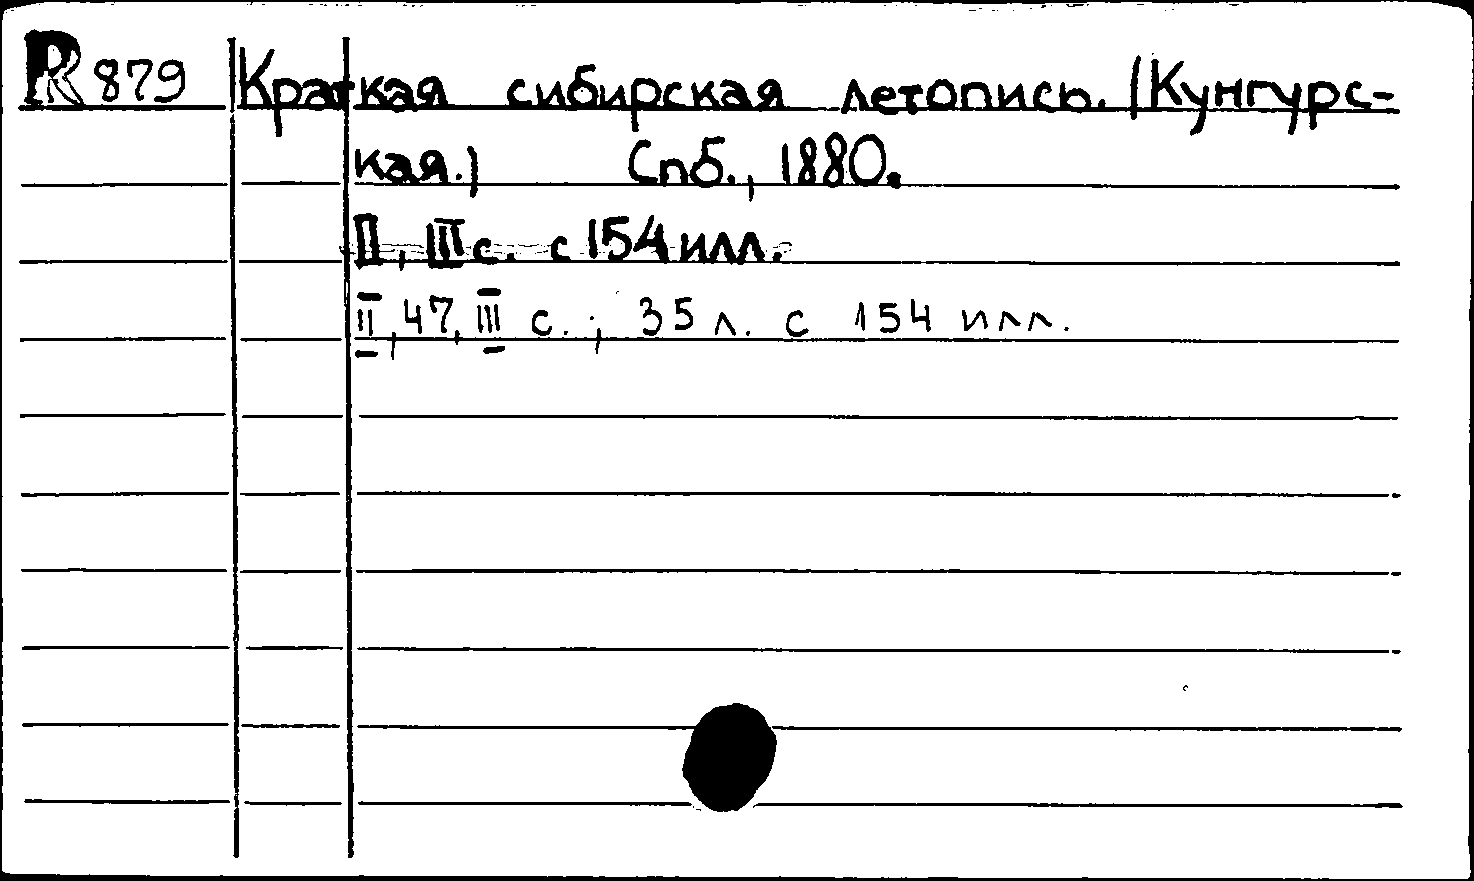 R 879 Краткая сибирская летопись. (Кунгурс-
кая.) Спб., 1880.
II, III с. с 154 илл.
II, 47, III с.; 35 л. с 154 илл.